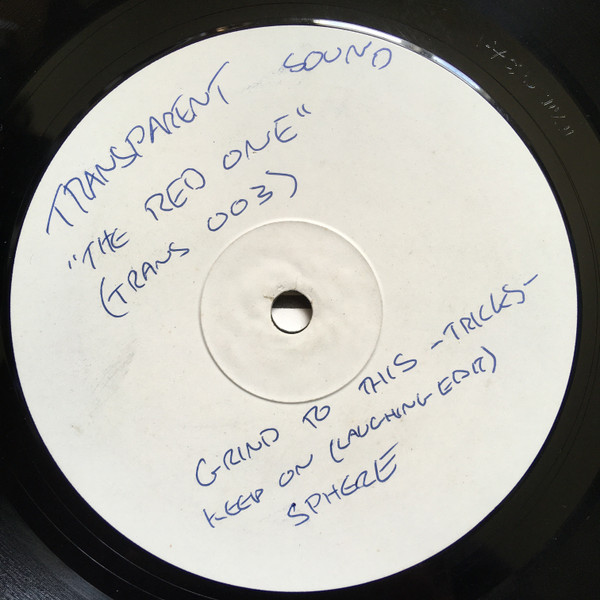 TRANSPARENT SOUND
"THE RED ONE"
(TRANS 003)
GRIND TO THIS -TRICKS-
KEEP ON (LAUGHING EDIT)
SPHERE